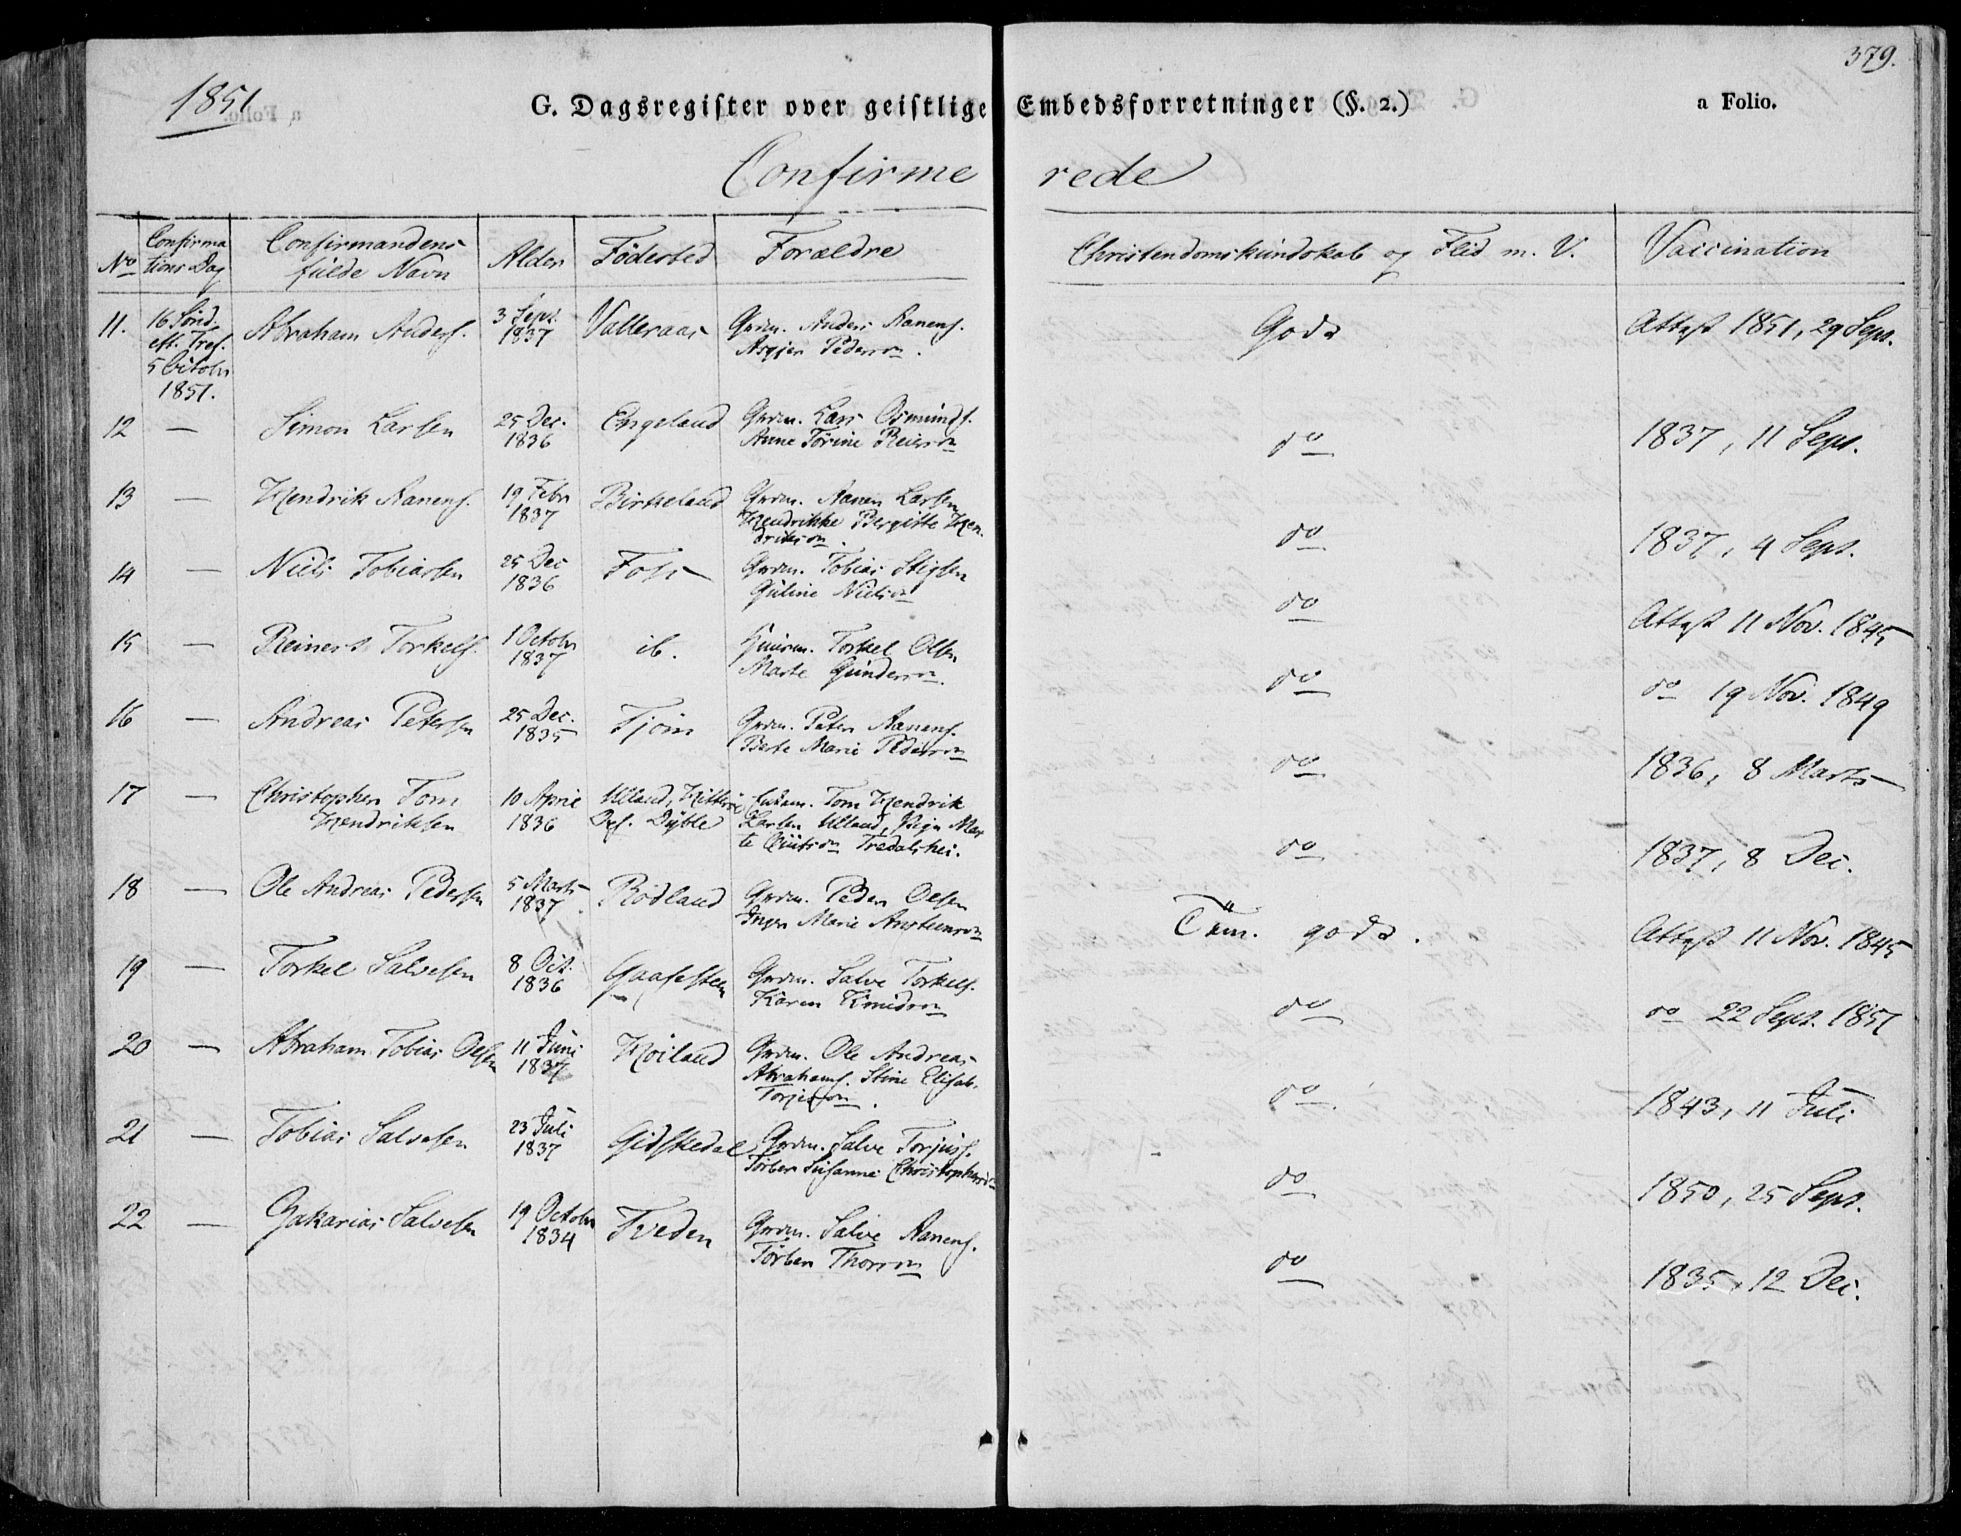 1851
G. Dagsregister over geistlige Embedsforretninger (§. 2.)
a Folio.
379.
Confirmerede
No
Confirmations Dag
Confirmandens fulde Navn
Alder
Födested
Forældre
Christendomskundskab og Flid m. V.
Vaccination
11. 16 Sönd. eft. Tref. 5 October 1851. Abraham Anders. 3 Sept. 1837 Valleraas Grdm. Anders Aanens. Asgjer Pedersn. Godt Attest 1851, 29 Sept.
12 — Simon Larsen 25 Dec. 1836 Engeland Grdm. Lars Osmunds. Anne Törine Reiersn do 1837, 11 Sept.
13 — Hendrik Aanens. 19 Febr 1837 Birkeland Grdm. Aanen Larsen Hendrikke Bergitte Hendriksn. do 1837, 4 Sept.
14 — Niels Tobiassen 25 Dec 1836 Foss Grdm. Tobias Stigsen Guline Nielsn do Attest 11 Nov. 1845
15 — Reinert Torkels. 1 Octobr 1837 ib. Huusm. Torkel Olsen Marte Gundersn. do do 19 Nov. 1849
16 — Andreas Petersen 25 Dec. 1835 Fjom Grdm. Peter Aanens. Berte Marie Pedersn do 1836, 8 Marts
17 — Christopher Tom Hendriksen 10 April 1836 Ulland, Hitterö Tom Hendrik Larsen Ulland, Pige Marte Tredalshei. do 1837, 8 Dec.
18 — Ole Andreas Pedersen 5 Marts 1837 Rödland Grdm. Peder Olsen Inger Marie Austensn Tem. godt. Attest 11 Nov. 1845
19 — Torkel Salvesen 8 Oct. 1836 Gaasesteen Grdm. Salve Torkels. Karen Knudsn do do 22 Sept. 1851
20 — Abraham Tobias Olsen 11 Juni 1837 Höiland Grdm. Ole Andreas Abrahams. Stine Elisab. Torjesn. do 1843, 11 Juli
21 — Tobias Salvesen 23 Juli 1837 Gidskedal Grdm. Salve Torjuss. Torber Susanne Christophersn do 1850, 25 Sept.
22 — Zakarias Salvesen 19 Octobr 1834 Tveden Grdm. Salve Aanens. Torber Thorsn do 1835, 12 Dec.